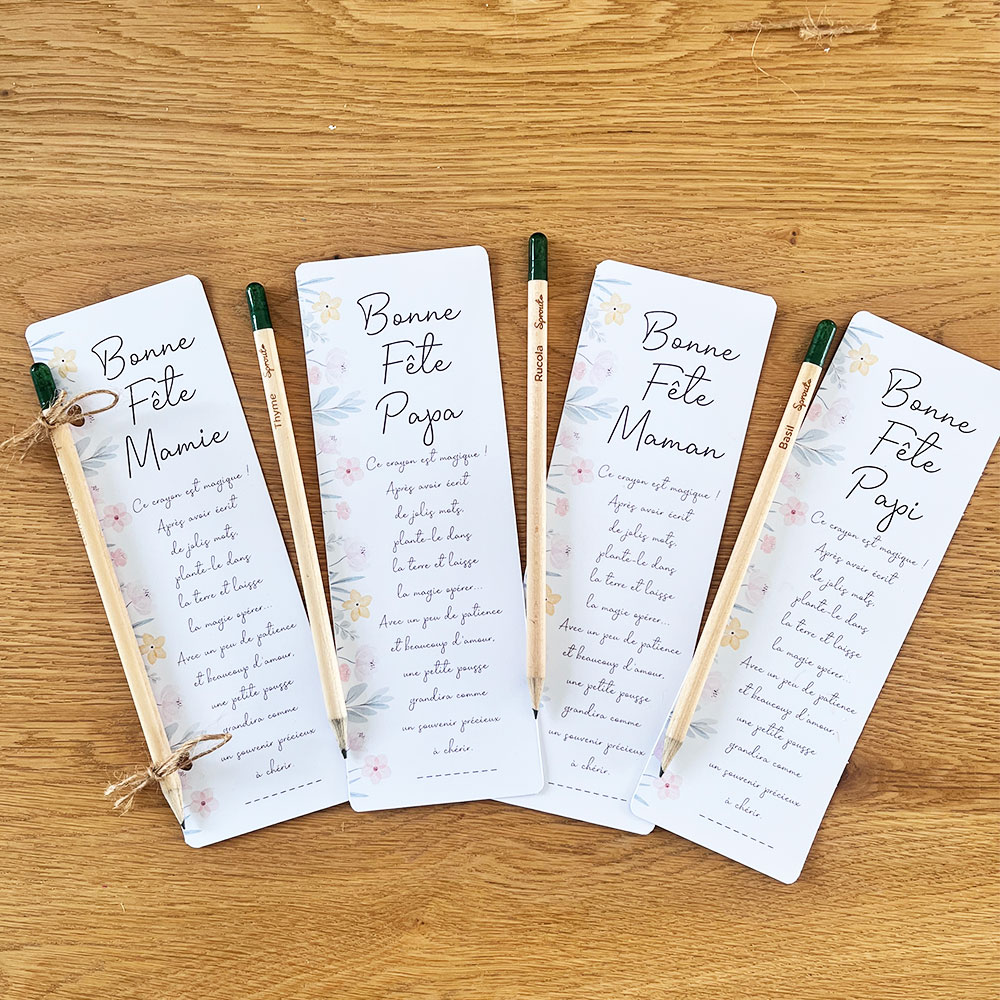 Bonne
Fête
Mamie
Ce crayon est magique !
Après avoir écrit
de jolis mots,
plante-le dans
la terre et laisse
la magie opérer...
Avec un peu de patience
et beaucoup d'amour,
une petite pousse
grandira comme
un souvenir précieux
à chérir.
Thyme Sprout
Bonne
Fête
Papa
Ce crayon est magique !
Après avoir écrit
de jolis mots,
plante-le dans
la terre et laisse
la magie opérer...
Avec un peu de patience
et beaucoup d'amour,
une petite pousse
grandira comme
un souvenir précieux
à chérir.
Rucola Sprout
Bonne
Fête
Maman
Ce crayon est magique !
Après avoir écrit
de jolis mots,
plante-le dans
la terre et laisse
la magie opérer...
Avec un peu de patience
et beaucoup d'amour,
une petite pousse
grandira comme
un souvenir précieux
à chérir.
Basil Sprout
Bonne
Fête
Papi
Ce crayon est magique !
Après avoir écrit
de jolis mots,
plante-le dans
la terre et laisse
la magie opérer...
Avec un peu de patience
et beaucoup d'amour,
une petite pousse
grandira comme
un souvenir précieux
à chérir.